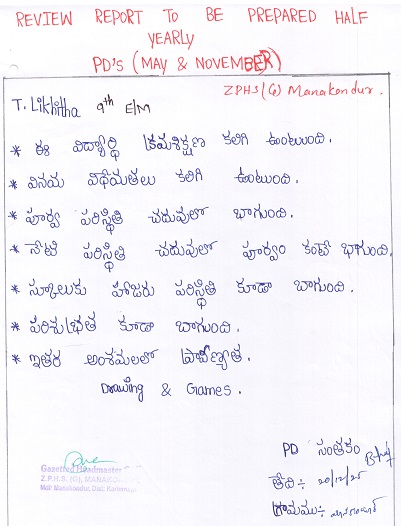 REVIEW REPORT TO BE PREPARED HALF
YEARLY
PD'S (MAY & NOVEMBER)
ZPHS (G) Manakondur.
T. Likhitha 9th E/M
* ఈ విద్యార్థి క్రమశిక్షణ కలిగి ఉంటుంది.
* వినయ విధేయతలు కలిగి ఉంటుంది.
* పూర్వ పరిస్థితి చదువులో బాగుంది.
* నేటి పరిస్థితి చదువులో పూర్వం కంటే బాగుంది.
* స్కూలుకు హాజరు పరిస్థితి కూడా బాగుంది.
* పరిశుభ్రత కూడా బాగుంది.
* ఇతర అంశములలో ప్రావీణ్యత.
Drawing & Games.
Gazetted Headmaster
Z.P.H.S. (G), MANAKO
Mdl: Manakondur, Dist. Karimna
PD సంతకం
తేది :- 20/12/25
గ్రామము :-